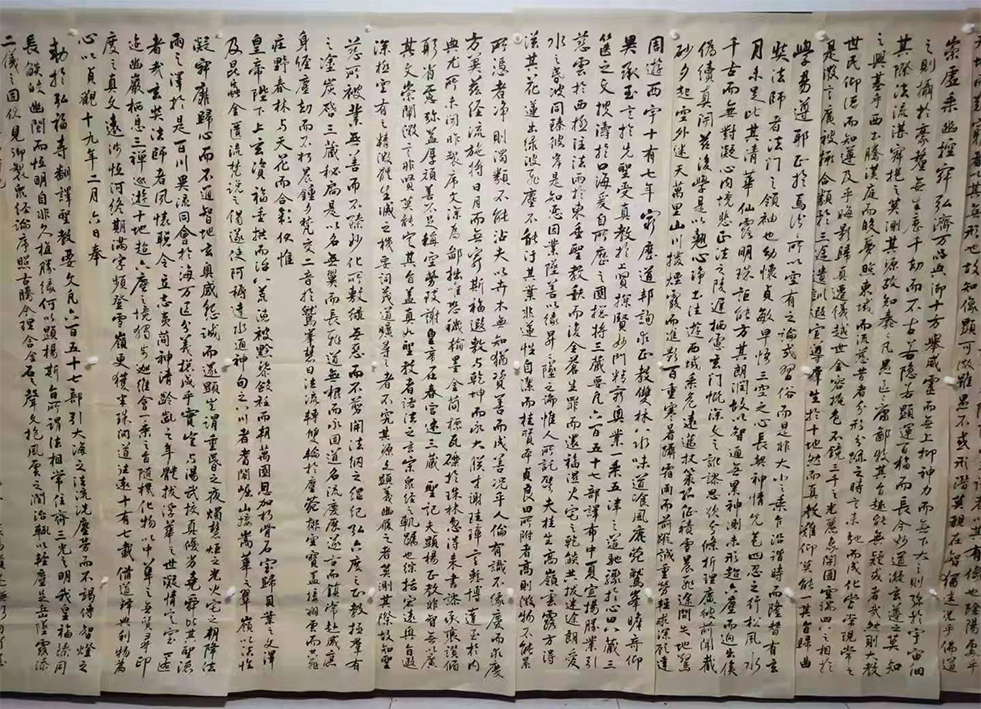 崇虛乘幽控寂弘濟万品典御十方舉威靈而無上抑神力而無下大之則彌於宇宙細
之則攝於毫釐無滅無生歷千劫而不古若隱若顯運百福而長今妙道凝玄遵之莫知
其際法流湛寂挹之莫測其源故知蠢蠢凡愚區區庸鄙投其旨趣能無疑惑者哉然則大教
之興基乎西土騰漢庭而皎夢照東域而流慈昔者分形分跡之時言未馳而成化當常現常之
世民仰德而知遵及乎晦影歸真遷儀越世金容掩色不鏡三千之光麗象開圖空端四八之相於
是微言廣被拯含類於三途遺訓遐宣導群生於十地然而真教難仰莫能一其旨歸曲
學易遵邪正於焉紛糾所以空有之論或習俗而是非大小之乘乍沿時而隆替有玄
奘法師者法門之領袖也幼懷貞敏早悟三空之心長契神情先苞四忍之行松風水
月未足比其清華仙露明珠詎能方其朗潤故以智通無累神測未形超六塵而迥出隻
千古而無對凝心內境悲正法之陵遲栖慮玄門慨深文之訛謬思欲分條析理廣彼前聞截
偽續真開茲後學是以翹心淨土往遊西域乘危遠邁杖策孤征積雪晨飛途間失地驚
砂夕起空外迷天萬里山川撥煙霞而進影百重寒暑躡霜雨而前蹤誠重勞輕求深願達
周遊西宇十有七年窮歷道邦詢求正教雙林八水味道湌風鹿苑鷲峯瞻奇仰
異承至言於先聖受真教於上賢探賾妙門精窮奧業一乘五律之道馳驟於心田八藏三
篋之文波濤於口海爰自所歷之國總將三藏要文凡六百五十七部譯布中夏宣揚勝業引
慈雲於西極注法雨於東垂聖教缺而復全蒼生罪而還福濕火宅之乾焰共拔迷途朗愛
水之昏波同臻彼岸是知惡因業墜善以緣昇昇墜之端惟人所託譬夫桂生高嶺雲露方得
泫其花蓮出淥波飛塵不能汙其葉非蓮性自潔而桂質本貞良由所附者高則微物不能累
所憑者淨則濁類不能沾夫以卉木無知猶資善而成善況乎人倫有識不緣慶而求慶
方冀茲經流施將日月而無窮斯福遐敷與乾坤而永大朕才謝珪璋言慙博達至於內
典尤所未閑昨製序文深為鄙拙唯恐穢翰墨於金簡標瓦礫於珠林忽得來書謬承褒讚循
躬省慮彌益厚顏善不足稱空勞致謝皇帝在春宮述三藏聖記夫顯揚正教非智無以廣
其文崇闡微言非賢莫能定其旨蓋真如聖教者諸法之玄宗眾經之軌躅也綜括宏遠奧旨遐
深極空有之精微體生滅之機要詞茂道曠尋之者不究其源文顯義幽履之者莫測其際故知聖
慈所被業無善而不臻妙化所敷緣無惡而不翦開法網之綱紀弘六度之正教拯群有
之塗炭啓三藏之秘扃是以名無翼而長飛道無根而永固道名流慶歷遂古而鎮常赴感應
身經塵劫而不朽晨鍾夕梵交二音於鷲峯慧日法流轉雙輪於鹿菀排空寶蓋接翔雲而共飛
莊野春林與天花而合彩伏惟
皇帝陛下上玄資福垂拱而治八荒德被黔黎斂衽而朝萬國恩加朽骨石室歸貝葉之文澤
及昆蟲金匱流梵說之偈遂使阿耨達水通神甸之八川耆闍崛山接嵩華之翠嶺竊以法性
凝寂靡歸心而不通智地玄奧感懇誠而遂顯豈謂重昏之夜燭慧炬之光火宅之朝降法
雨之澤於是百川異流同會於海万區分義總成乎實豈與湯武校其優劣堯舜比其聖德
者哉玄奘法師者夙懷聰令立志夷簡神清齠齔之年體拔浮華之世凝情定室匿
迹幽巖栖息三禪巡遊十地超六塵之境獨步迦維會一乘之旨隨機化物以中華之無質尋印
度之真文遠涉恒河終期滿字頻登雪嶺更獲半珠問道法還十有七載備通釋典利物為
心以貞觀十九年二月六日奉
勅於弘福寺翻譯聖教要文凡六百五十七部引大海之法流洗塵勞而不竭傳智燈之
長焰皎幽闇而恒明自非久植勝緣何以顯揚斯旨所謂法相常住齊三光之明我皇福臻同
二儀之固伏見御製眾經論序照古騰今理含金石之聲文抱風雲之潤治輒以輕塵足岳墜露添流